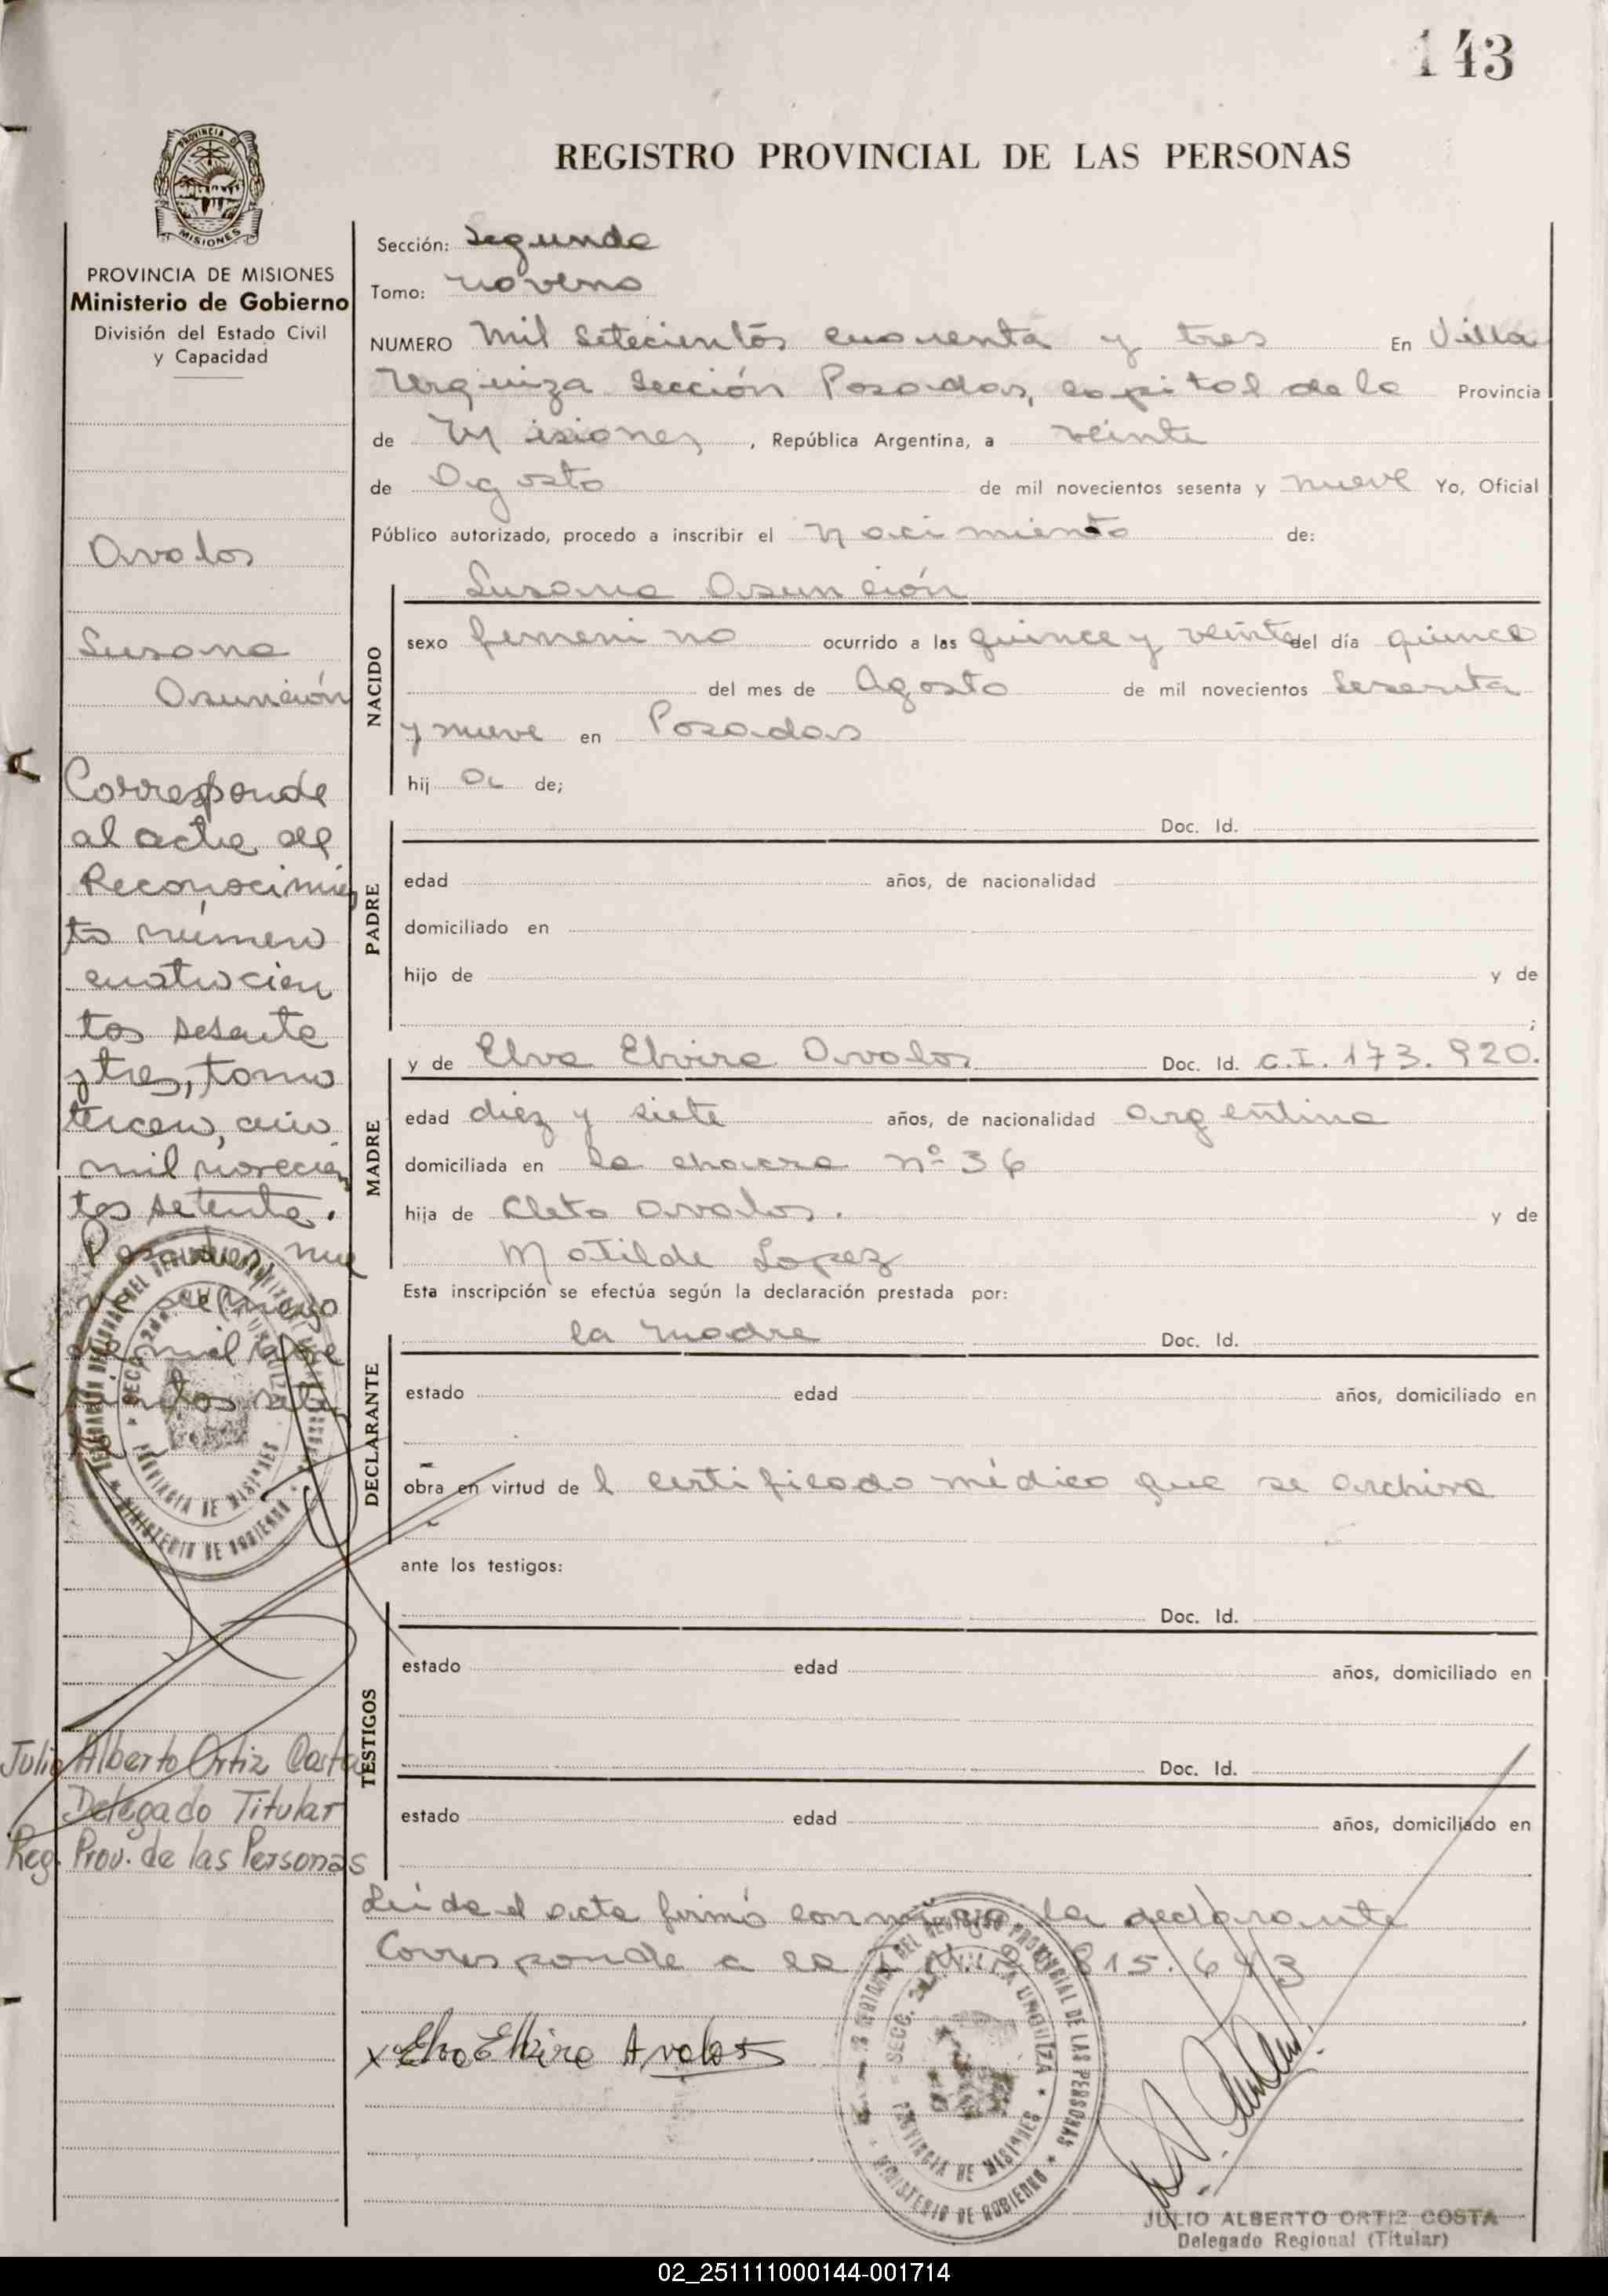 143
REGISTRO PROVINCIAL DE LAS PERSONAS
PROVINCIA DE
MISIONES
PROVINCIA DE MISIONES
Ministerio de Gobierno
División del Estado Civil
y Capacidad
Avalos
Susana
Asunción
Corresponde
al acta de
Reconocimien
to número
cuatrocien
tos sesenta
y tres, tomo
tercero, año
mil novecien
tos setenta.
Posadas, nue
ve de mayo
de mil nove
cientos seten
Julio Alberto Ortiz Costa
Delegado Titular
Reg. Prov. de las Personas
Sección: Segunda
Tomo: noveno
NUMERO Mil setecientos cuarenta y tres En Villa
Urquiza Sección Posadas, capital de la Provincia
de Misiones, República Argentina, a veinte
de Agosto de mil novecientos sesenta y nueve Yo, Oficial
Público autorizado, procedo a inscribir el Nacimiento de:
NACIDO
Susana Asunción
sexo femenino ocurrido a las quince y veinte del día quince
del mes de Agosto de mil novecientos sesenta
y nueve en Posadas
hij a de;
PADRE
Doc. Id.
edad años, de nacionalidad
domiciliado en
hijo de y de
;
MADRE
y de Elva Elvira Avalos Doc. Id. C.I. 173.920.
edad diez y siete años, de nacionalidad argentina
domiciliada en la chacra nº 36
hija de Cleto Avalos. y de
Matilde Lopez
Esta inscripción se efectúa según la declaración prestada por:
DECLARANTE
la madre Doc. Id.
estado edad años, domiciliado en
obra en virtud de l certificado médico que se archiva
ante los testigos:
TESTIGOS
Doc. Id.
estado edad años, domiciliado en
Doc. Id.
estado edad años, domiciliado en
Leída el acta firmó conmigo la declarante
Corresponde a la 815.643
x Elva Elvira Avalos
SECC. 2da. VILLA URQUIZA
PROVINCIA DE MISIONES
MINISTERIO DE GOBIERNO
JULIO ALBERTO ORTIZ COSTA
Delegado Regional (Titular)
02_251111000144-001714